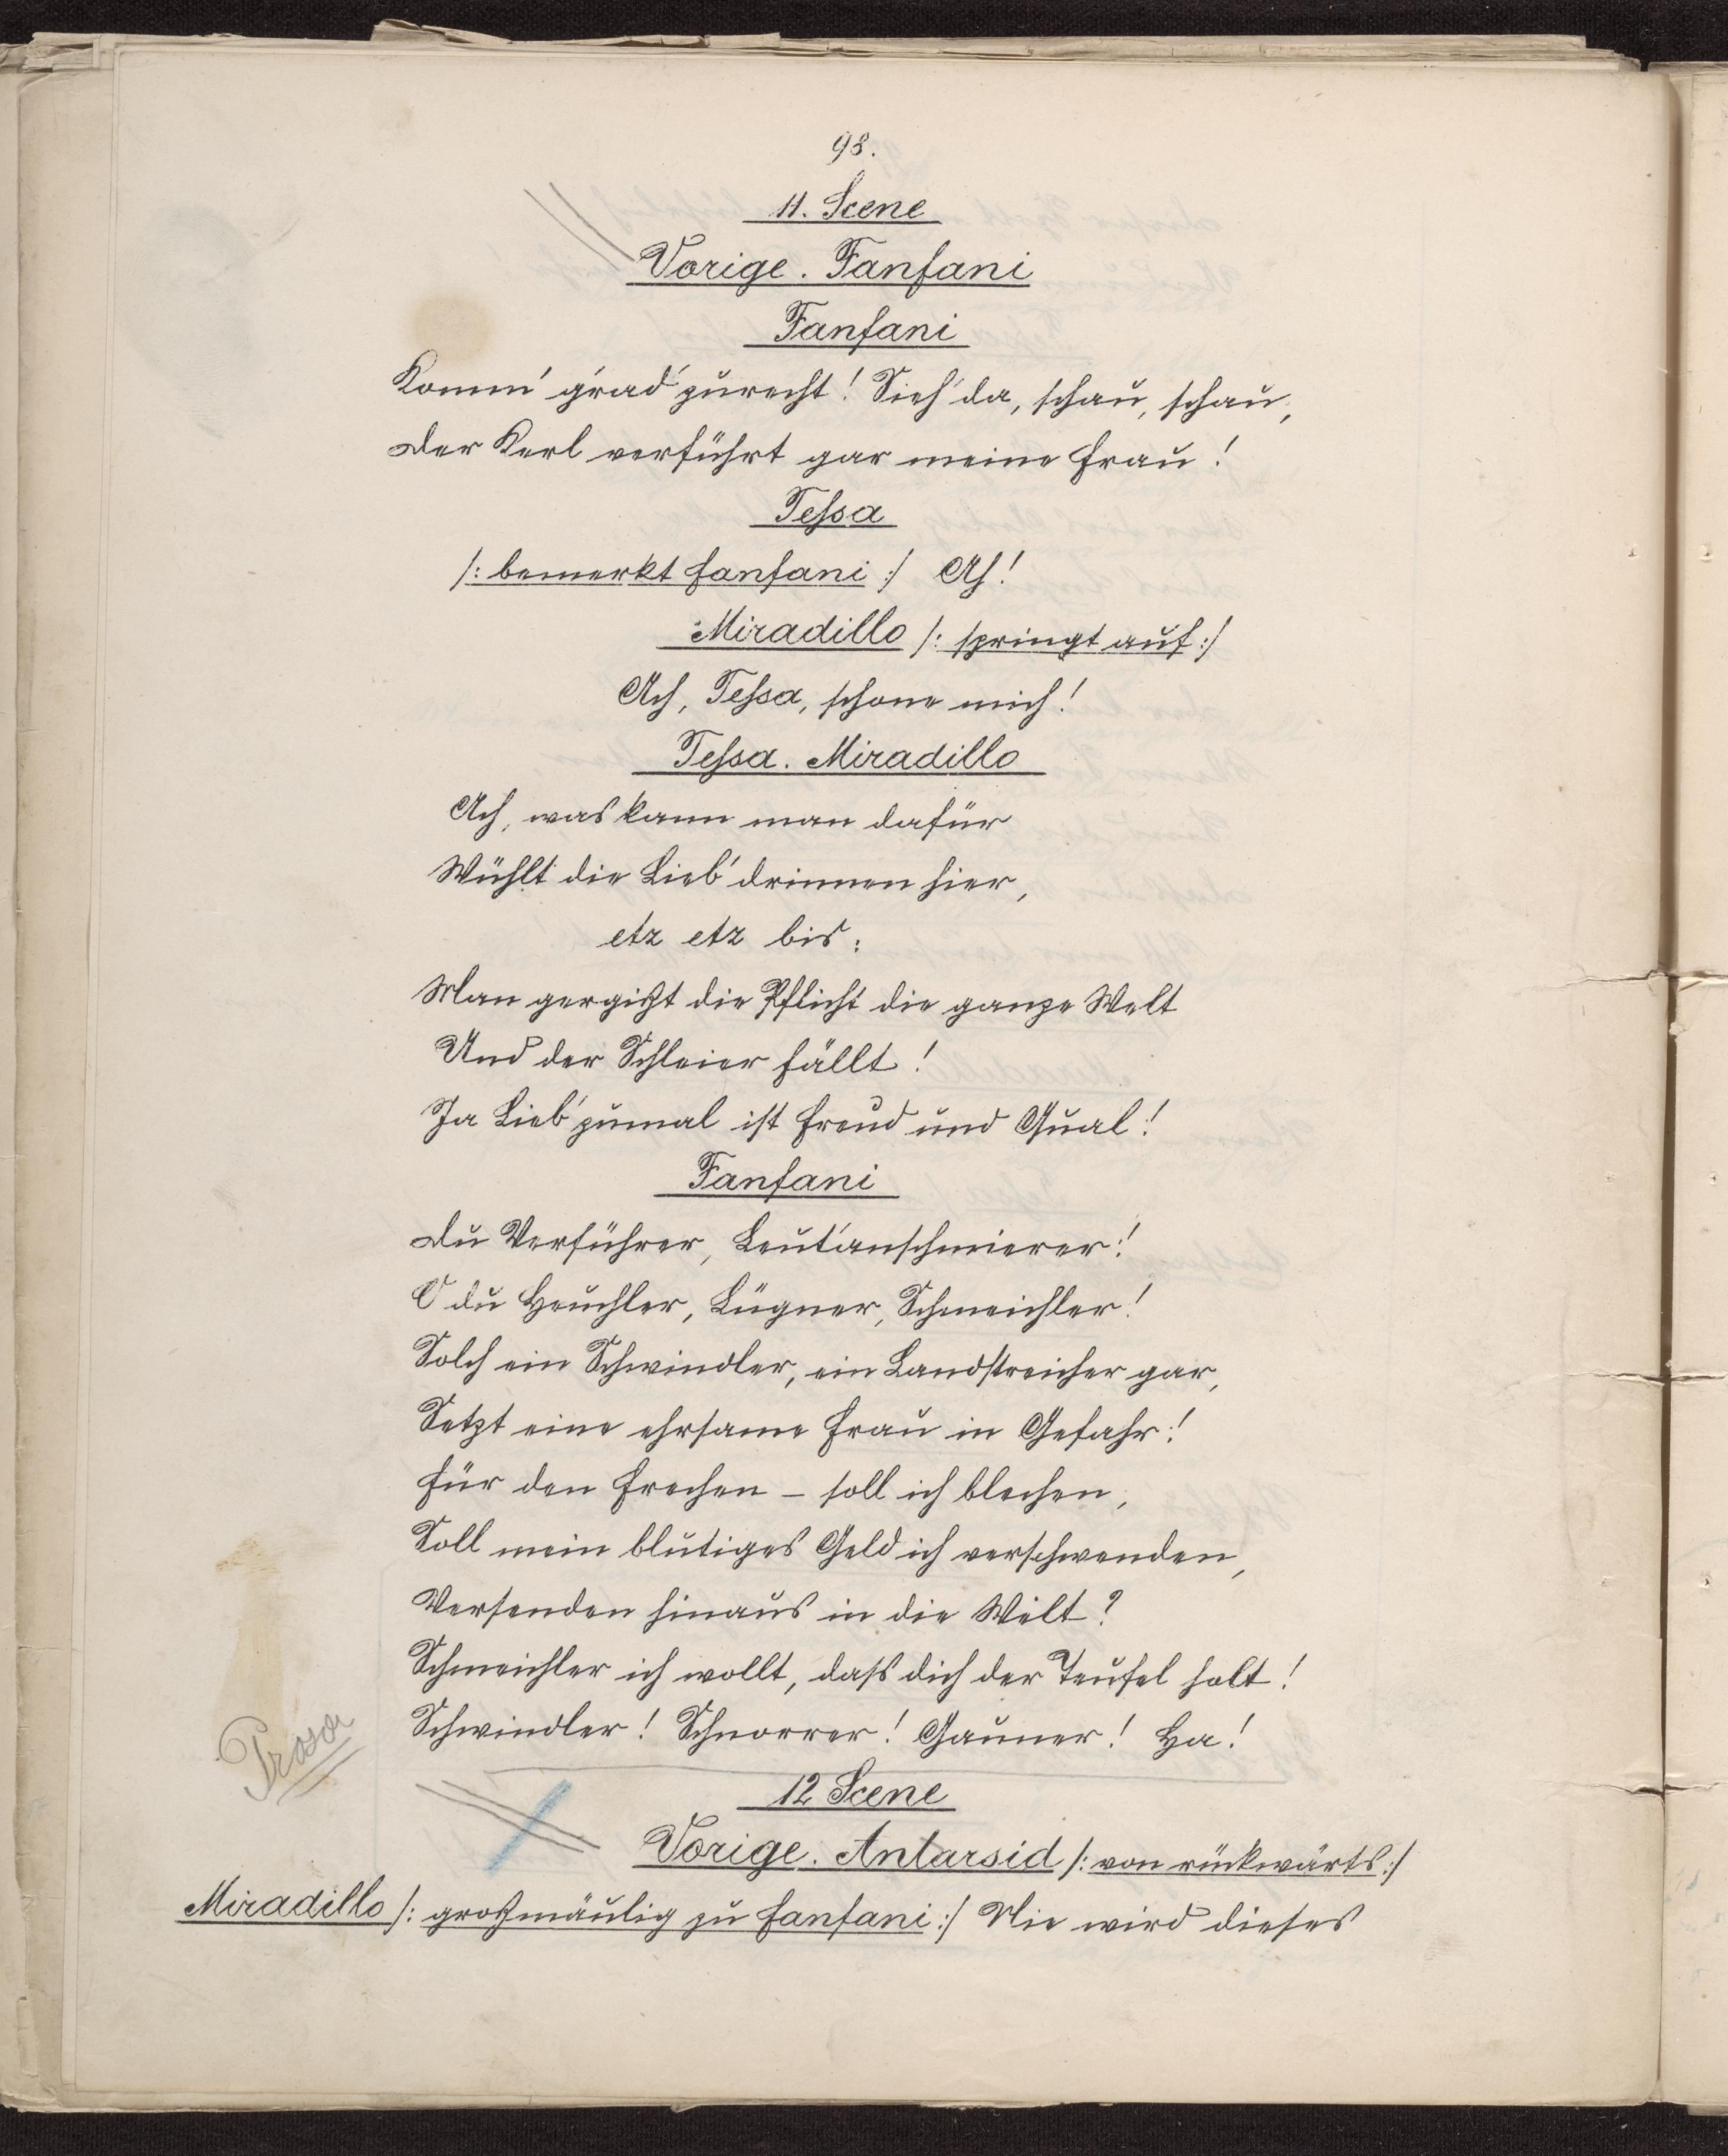 98.
11. Scene
Vorige. Fanfani
Fanfani
Komm' g'rad' zurecht! Sieh' da, schau, schau,
Der Kerl verführt gar meine Frau!
Tessa
/: bemerkt Fanfani :/ Ah!
Miradillo /: springt auf :/
Ach, Tessa, schone mich!
Tessa. Miradillo
Ach, was kann man dafür
Wühlt die Lieb' drinnen hier,
etz etz bis:
Man gergißt die Pflicht die ganze Welt
Und der Schleier fällt!
Ja Lieb' zumal ist Freud und Qual!
Fanfani
Du Verführer, Leut'anschmierer!
O du Heuchler, Lügner, Schmeichler!
Solch ein Schwindler, ein Landstreicher gar,
Setzt eine ehrsame Frau in Gefahr!
Für den Frechen – soll ich blechen,
Soll mein blutiges Geld ich verschwenden,
Versenden hinaus in die Welt?
Schmeichler ich wollt, dass dich der Teufel holt!
Schwindler! Schnorrer! Gauner! Ha!
Prosa
12 Scene
Vorige. Antarsid /: von rückwärts :/
Miradillo /: großmäulig zu Fanfani :/ Nie wird dieses